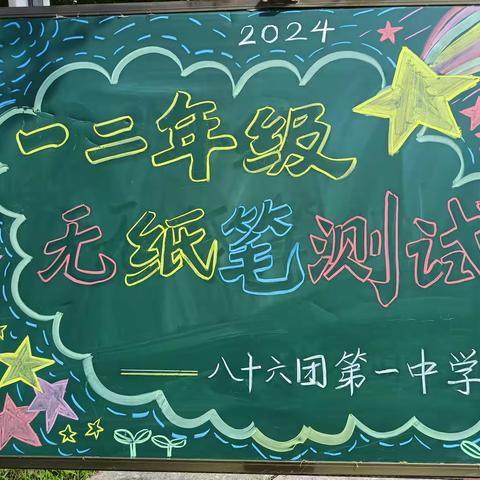 2024
一二年级
无纸笔测试
——八十六团第一中学